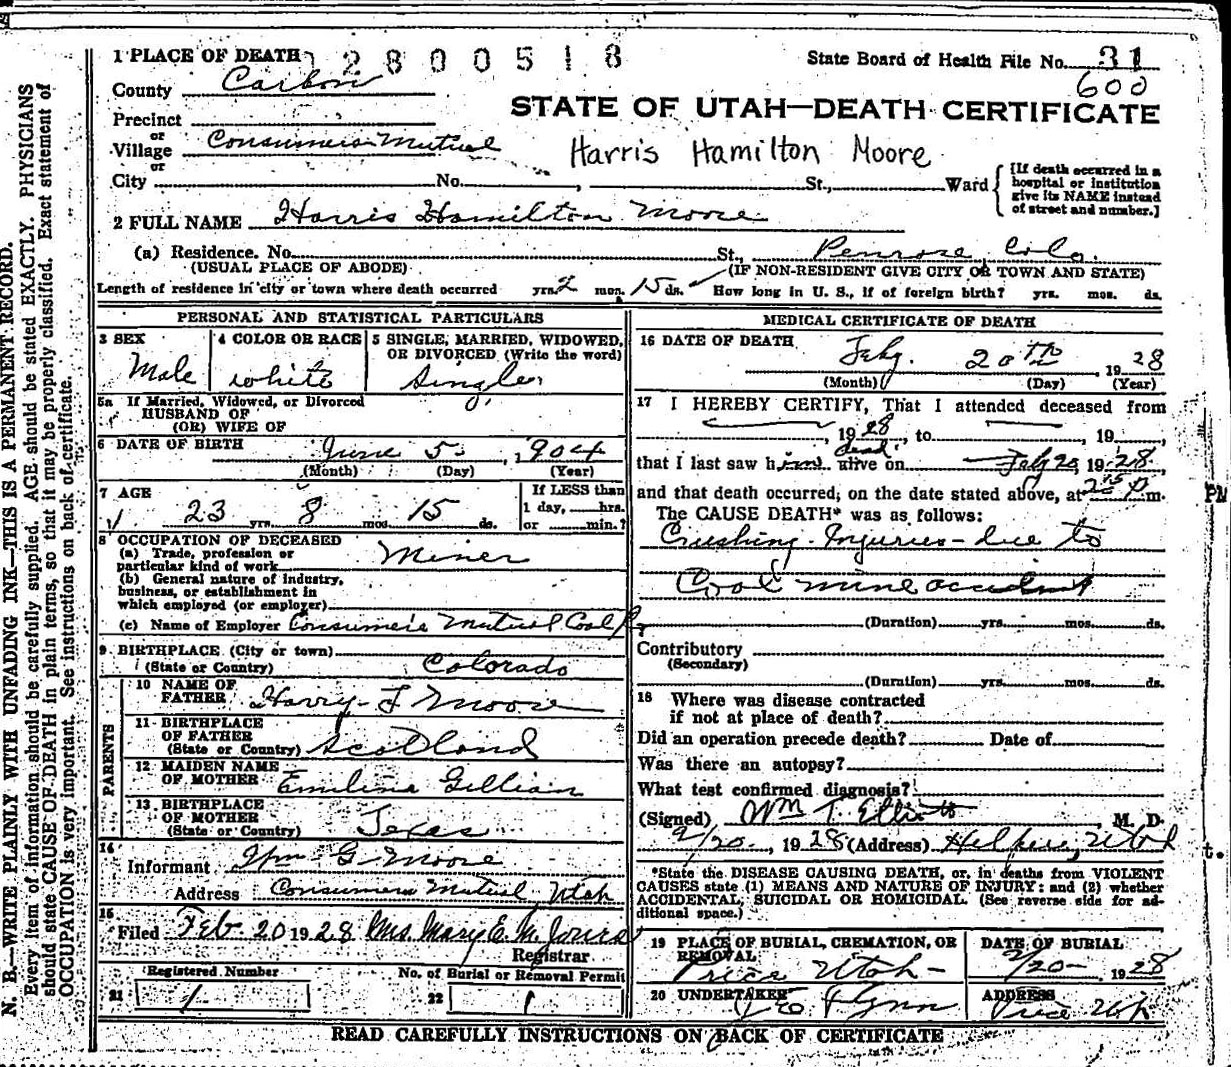 1 PLACE OF DEATH 2 8 0 0 5 1 8
State Board of Health File No. 31
600
County Carbon
STATE OF UTAH—DEATH CERTIFICATE
Precinct
or
Village Consumers Mutual
Harris Hamilton Moore
or
City No. , St., Ward
[If death occurred in a
hospital or institution
give its NAME instead
of street and number.]
2 FULL NAME Harris Hamilton Moore
(a) Residence. No. St., Penrose, Colo.
(USUAL PLACE OF ABODE) (IF NON-RESIDENT GIVE CITY OR TOWN AND STATE)
Length of residence in city or town where death occurred yrs. 2 mos. 15 ds. How long in U. S., if of foreign birth? yrs. mos. ds.
PERSONAL AND STATISTICAL PARTICULARS
3 SEX
Male
4 COLOR OR RACE
white
5 SINGLE, MARRIED, WIDOWED,
OR DIVORCED (Write the word)
Single
5a If Married, Widowed, or Divorced
HUSBAND OF
(OR) WIFE OF
6 DATE OF BIRTH June 5, 1904
(Month) (Day) (Year)
7 AGE
23 yrs. 8 mos. 15 ds.
If LESS than
1 day, hrs.
or min.?
8 OCCUPATION OF DECEASED
(a) Trade, profession or
particular kind of work Miner
(b) General nature of industry,
business, or establishment in
which employed (or employer)
(c) Name of Employer Consumers Mutual Coal
9 BIRTHPLACE (City or town)
(State or Country) Colorado
PARENTS
10 NAME OF
FATHER Harry F Moore
11 BIRTHPLACE
OF FATHER
(State or Country) Scotland
12 MAIDEN NAME
OF MOTHER Emiline Gillian
13 BIRTHPLACE
OF MOTHER
(State or Country) Texas
14
Informant Wm G Moore
Address Consumers Mutual, Utah
15
Filed Feb 20 1928 Mrs. Mary E. M. Jones
Registrar
Registered Number
21 1
No. of Burial or Removal Permit
22 1
MEDICAL CERTIFICATE OF DEATH
16 DATE OF DEATH
Feby. 20TH 1928
(Month) (Day) (Year)
17 I HEREBY CERTIFY, That I attended deceased from
, 1928, to , 19 ,
dead
that I last saw him alive on Feby 20, 1928,
and that death occurred, on the date stated above, at P.m.
PM
The CAUSE DEATH* was as follows:
Crushing Injuries - due to
Coal mine accident
(Duration) yrs. mos. ds.
Contributory
(Secondary)
(Duration) yrs. mos. ds.
18 Where was disease contracted
if not at place of death?
Did an operation precede death? Date of
Was there an autopsy?
What test confirmed diagnosis?
(Signed) Wm T. Elliott, M. D.
2/20, 1928 (Address) Helper, Utah
*State the DISEASE CAUSING DEATH, or, in deaths from VIOLENT
CAUSES state (1) MEANS AND NATURE OF INJURY; and (2) whether
ACCIDENTAL, SUICIDAL OR HOMICIDAL. (See reverse side for ad-
ditional space.)
19 PLACE OF BURIAL, CREMATION, OR
REMOVAL
Price Utah
DATE OF BURIAL
2/20 1928
20 UNDERTAKER
Flynn
ADDRESS
Price Utah
READ CAREFULLY INSTRUCTIONS ON BACK OF CERTIFICATE
N. B.—WRITE PLAINLY WITH UNFADING INK—THIS IS A PERMANENT RECORD.
Every item of information should be carefully supplied. AGE should be stated EXACTLY. PHYSICIANS
should state CAUSE OF DEATH in plain terms, so that it may be properly classified. Exact statement of
OCCUPATION is very important. See instructions on back of certificate.